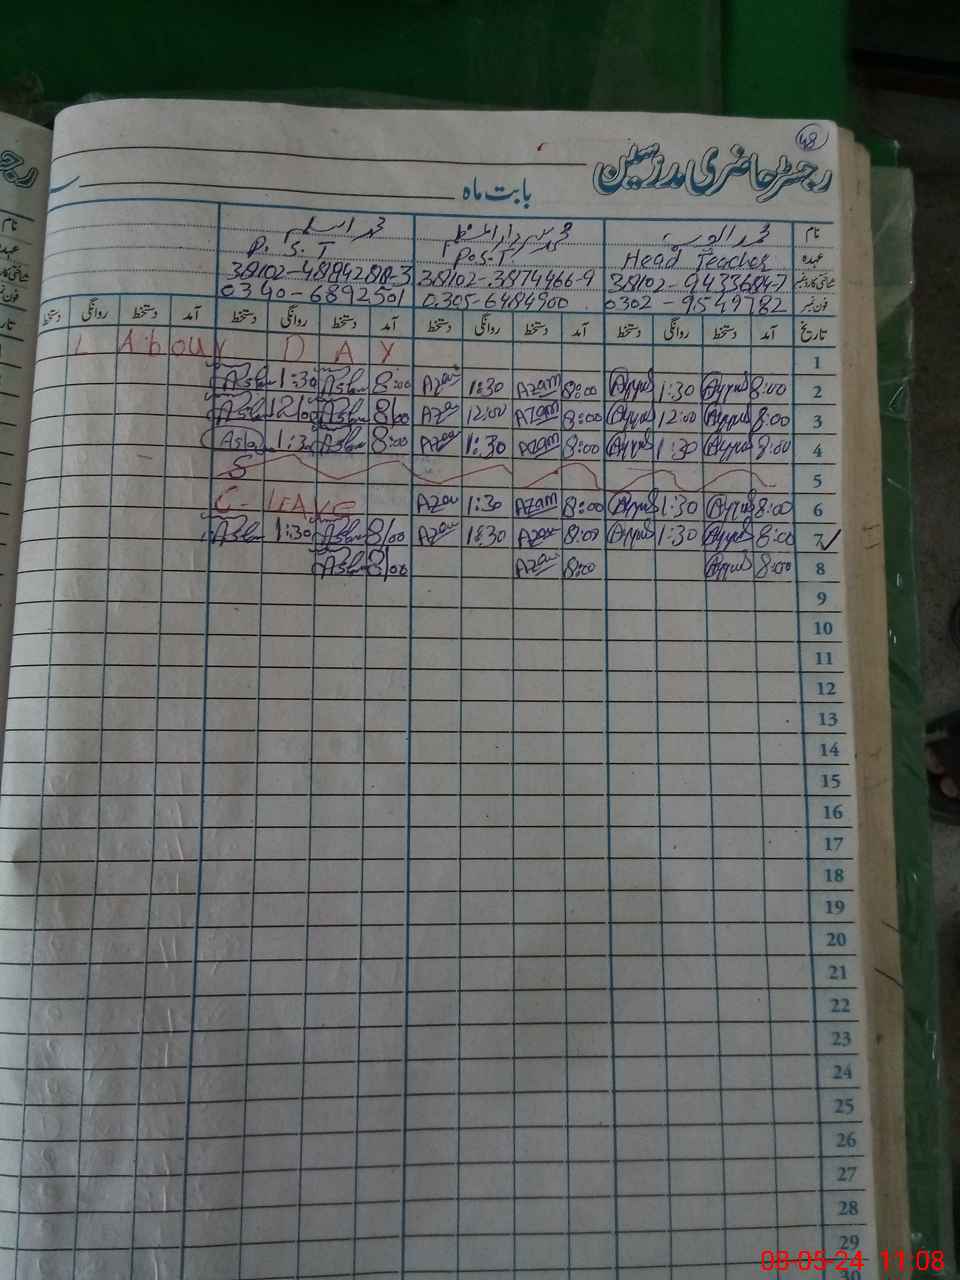 48
رجسٹر حاضری مدرسین
بابت ماہ
نام محمد ایوب محمد اسلم
عہدہ Head Teacher P.S.T P.S.T
شناختی کارڈ نمبر 38102-9433684-7 38102-3874466-9 38102-4819428-3
فون نمبر 0302-9549782 0305-6484900 0340-6892501
تاریخ آمد دستخط روانگی دستخط آمد دستخط روانگی دستخط آمد دستخط روانگی دستخط آمد دستخط روانگی دستخط
1 LAbOUr DAY
2 8:00 Ayyub 1:30 Ayyub 8:00 Azam 1:30 Azam 8:00 Aslam 1:30 Aslam
3 8:00 Ayyub 12:00 Ayyub 8:00 Azam 12:00 Azam 8/00 Aslam 12/00 Aslam
4 8:00 Ayyub 1:30 Ayyub 8:00 Azam 1:30 Azam 8:00 Aslam 1:30 Aslam
5 S
6 8:00 Ayyub 1:30 Ayyub 8:00 Azam 1:30 Azam C-LEAVE
7 8:00 Ayyub 1:30 Ayyub 8:00 Azam 1:30 Azam 8/00 Aslam 1:30 Aslam
8 8:00 Ayyub 8:00 Azam 8/00 Aslam
9
10
11
12
13
14
15
16
17
18
19
20
21
22
23
24
25
26
27
28
29
08-05-24 11:08